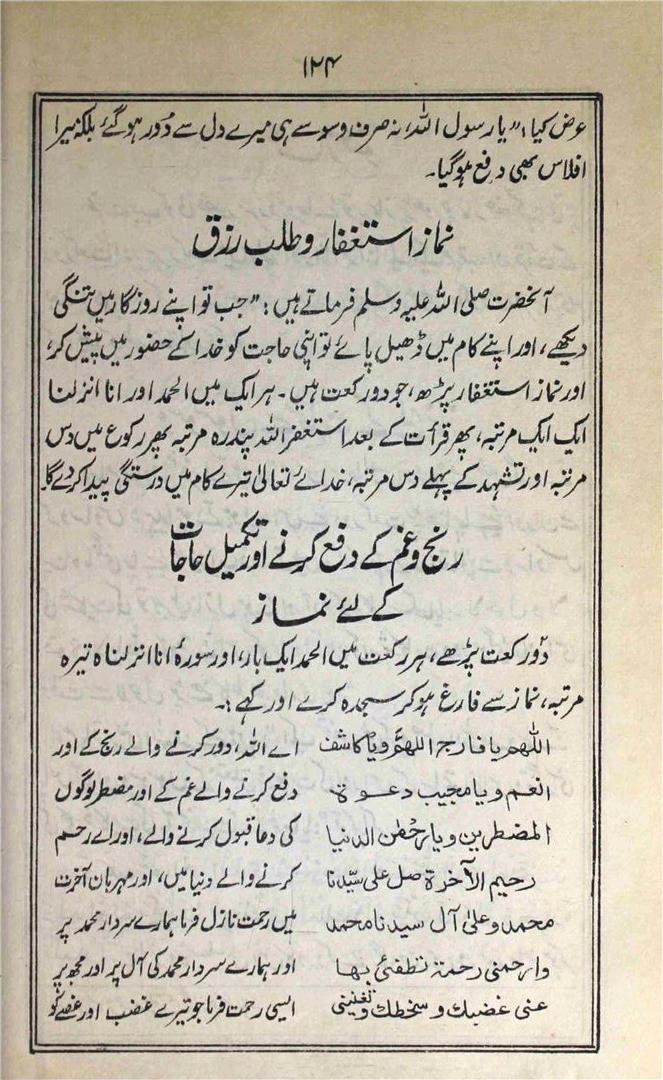 ۱۲۴
عرض کیا: "یا رسول اللہ، نہ صرف وسوسے ہی میرے دل سے دُور ہو گئے بلکہ میرا
افلاس بھی دفع ہو گیا۔
نماز استغفار و طلب رزق
آنحضرت صلی اللہ علیہ وسلم فرماتے ہیں: "جب تو اپنے روزگار میں تنگی
دیکھے، اور اپنے کام میں ڈھیل پائے تو اپنی حاجت کو خدا کے حضور میں پیش کر،
اور نماز استغفار پڑھ، جو دو رکعت ہیں۔ ہر ایک میں الحمد اور انا انزلنا
ایک ایک مرتبہ، پھر قرأت کے بعد استغفر اللہ پندرہ مرتبہ پھر رکوع میں دس
مرتبہ اور تشہد کے پہلے دس مرتبہ، خدائے تعالیٰ تیرے کام میں درستگی پیدا کر دے گا۔
رنج و غم کے دفع کرنے اور تکمیل حاجات
کے لئے نماز
دو رکعت پڑھے، ہر رکعت میں الحمد ایک بار، اور سورہ انا انزلناہ تیرہ
مرتبہ، نماز سے فارغ ہو کر سجدہ کرے اور کہے :۔
اللھم یا فارجہ اللھم ویا کاشف اے اللہ، دور کرنے والے رنج کے اور
الغم ویا مجیب دعوة دفع کرنے والے غم کے اور مضطر لوگوں
المضطرین ویا رحمٰن الدنیا کی دعا قبول کرنے والے، اور اے رحم
رحیم الآخرة صل علی سیّدنا کرنے والے دنیا میں، اور مہربان آخرت
محمد وعلیٰ آل سیدنا محمد میں رحمت نازل فرما ہمارے سردار محمد پر
وارحمنی رحمة تطفئی بھا اور ہمارے سردار محمد کی آل پر اور مجھ پر
عنی غضبك و سخطك وتغنینی ایسی رحمت فرما جو تیرے غضب اور غصے کو